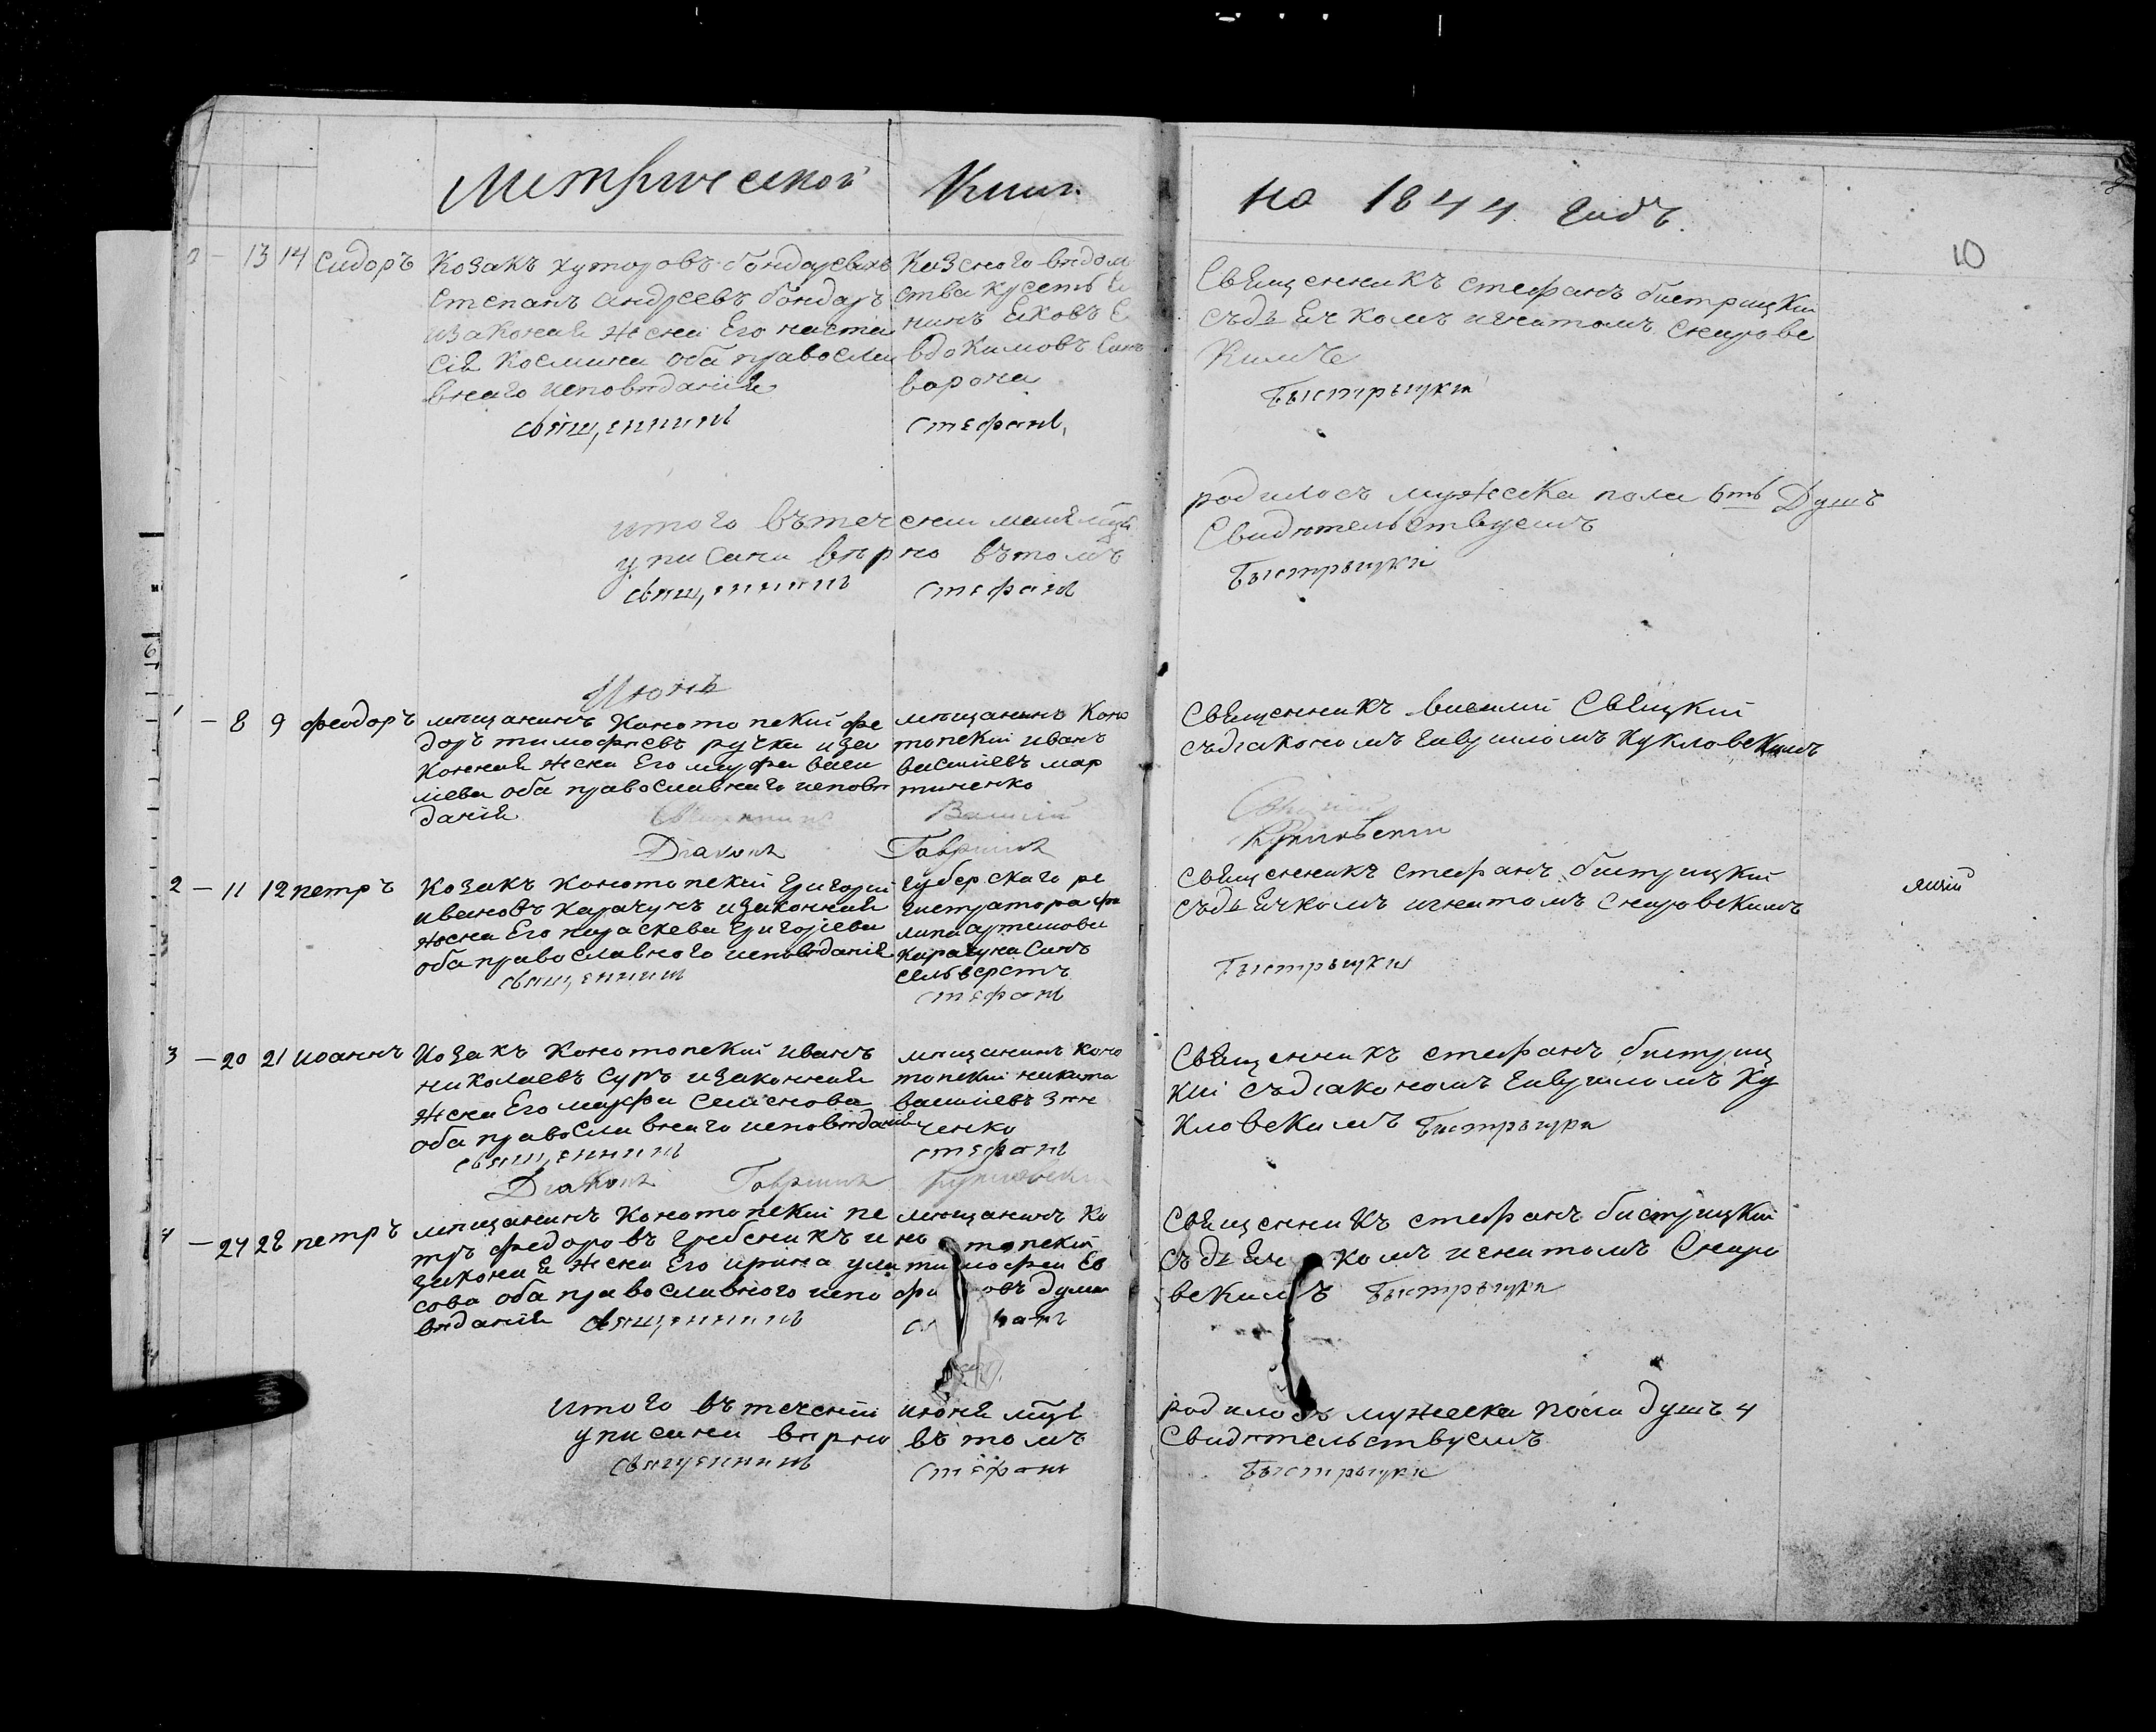 Метрической Книг.
на 1844. годъ.
10
13 14 Сидоръ
Козакъ хуторовъ бондаревыхъ
Степанъ андреевъ бондаръ
изаконная жена Его наста
сія Космина оба правосла
внаго исповѣданія
священникъ
Казеного вѣдом
ства
нинъ Яковъ Е
вдокимовъ Синъ
ворона
Стефанъ
Священникъ стефанъ бистрицкій
съдьячкомъ игнатомъ
Кимъ
Быстрыцкій
итого вътеченіи маія мца
уписани вѣрно вътомъ
священникъ Стефанъ
родилось мужеска пола 6ть Душъ
Свидѣтельствуемъ
Быстрыцкій
Июнь
1 – 8 9 феодоръ
мѣщанинъ Конотопскій фе
доръ тимофѣевъ ручка иза
конная жена Его марфа васи
лиева оба православнаго исповѣ
данія
Священникъ
Діаконъ
мѣщанинъ Коно
топскій иванъ
василіевъ мар
тиненко
Василій
Гавріилъ
Священникъ василій Свѣцкій
съдіакономъ гавриломъ Кукловскимъ
2 – 11 12 петръ
Козакъ конотопскій григорій
ивановъ карачунъ изаконная
жена Его параскева григоріева
оба православного исповѣданія
священникъ
губерского ре
гистратора фи
липа артемова
карачуна Синъ
Сельверстъ
Стефанъ
Священникъ стефанъ бистрицкій
съдьячкомъ игнатомъ
Быстрыцкій
3 – 20 21 иоаннъ
Козакъ Конотопскій иванъ
николаевъ Суръ изаконная
жена Его марфа Семенова
оба православнаго исповѣданія
священникъ
Діаконъ Гавріилъ
мѣщанинъ Коно
топскій никита
василіевъ Зѣн
ченко
Стефанъ
Священникъ стефанъ бистриц
кій съдіакономъ гавриломъ Ку
кловскимъ Быстрыцкій
4 – 27 28 петръ
мѣщанинъ Конотопскій пе
тръ федоровъ гребеникъ и
законая жена Его ирина
сова оба православного испо
вѣданія священникъ
мѣщанинъ Ко
но топскій
тимофей Ев
Священникъ стефанъ бистрицкій
съдьячкомъ игнатомъ
вскимъ Быстрыцкій
итого въ теченіи июня мца
уписани вѣрно въ томъ
священникъ Стефанъ
родилось мужеска пола душъ 4
Свидѣтельствуемъ
Быстрыцкій